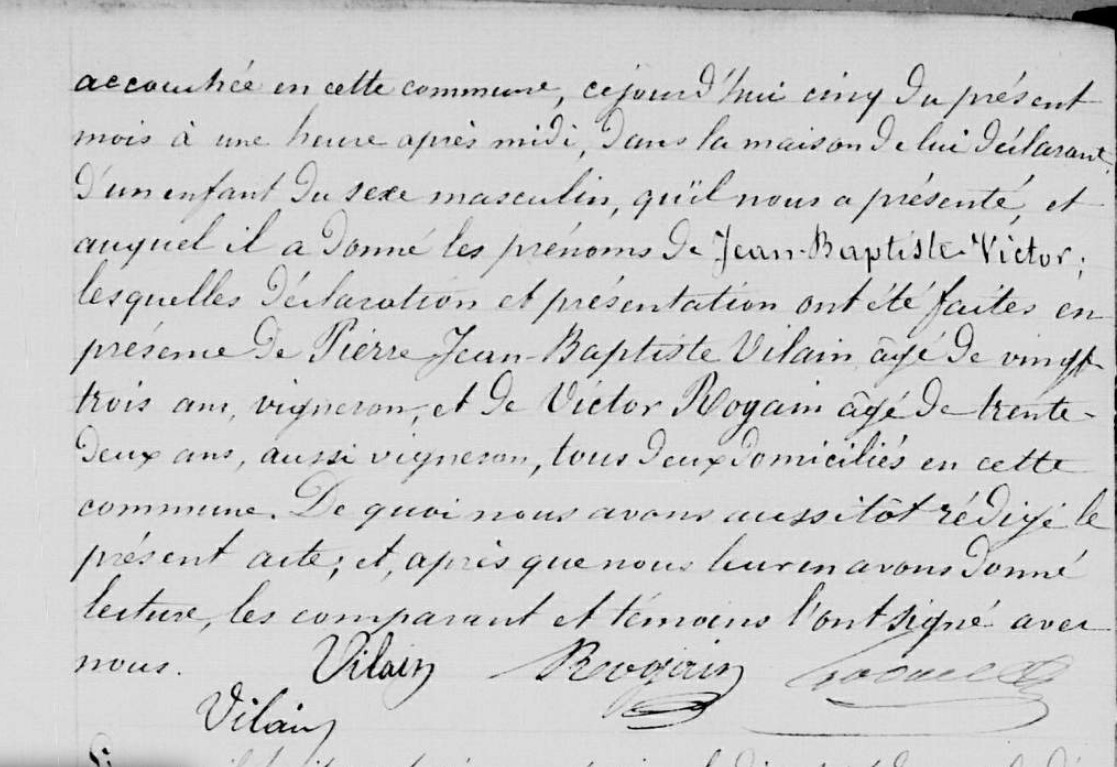 accouchée en cette commune, cejourd'hui cinq du présent
mois à une heure après midi, dans la maison de lui déclarant,
d'un enfant du sexe masculin, qu'il nous a présenté, et
auquel il a donné les prénoms de Jean-Baptiste Victor;
lesquelles déclaration et présentation ont été faites en
présence de Pierre Jean-Baptiste Vilain, âgé de vingt
trois ans, vigneron, et de Victor Rogain âgé de trente-
deux ans, aussi vigneron, tous deux domiciliés en cette
commune. De quoi nous avons aussitôt rédigé le
présent acte; et, après que nous leur en avons donné
lecture, les comparant et témoins l'ont signé avec
nous. Vilain Rogain
Vilain